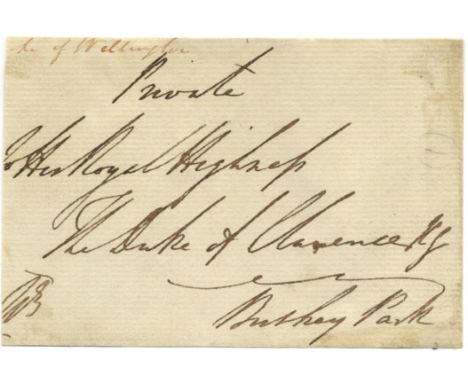 ke of Wellington
Private
To His Royal Highness
The Duke of Clarence KG
Bushey Park